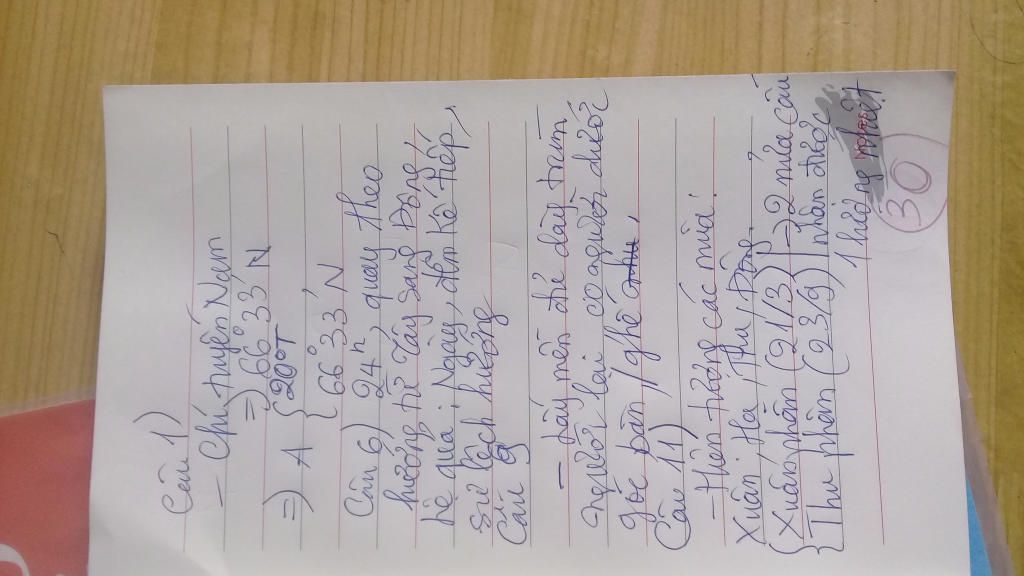 Câu 1)
- Chí tuyến Nam
=) 66°33' N
=) A { 20°T
{ 66°33' N
Câu 6) 24h, quay theo
hướng từ Tây sang Đông,
hệ quả: Ngày, đêm kế tiếp,
sự lệch hướng
Câu 9
- lấy nền để dây trùm
người lại co người dưới
gốc bàn / ghế
Câu 11)
- Hiện tượng các mùa:
Xuân, Hạ, Thu, Đông.
{ Xuân phân (21/3) | → 2 nửa cầu
{ Thu phân (23/9) | nhận được
1 lượng nhiệt
30